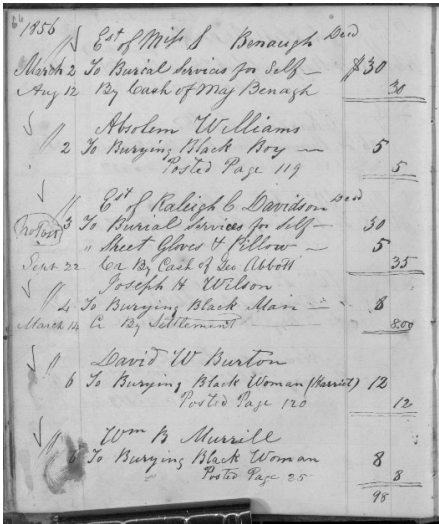 66
1856 Est of Miss S Benaugh Decd
March 2 To Burial Services for Self — $30
Aug 12 By Cash of Maj Benagh 30
" Absolem Williams
2 To Burying Black Boy — 5
Posted Page 119 5
" Est of Raleigh C Davidson Decd
3 To Burial Services for Self — 30
" Sheet Gloves & Pillow — 5
Sept 22 Cr By Cash of Geo Abbott 35
" Joseph H Wilson
4 To Burying Black Man — 8
March 14 Cr By Settlement 8.00
" David W Burton
6 To Burying Black Woman (Harriet) 12
Posted Page 120 12
" Wm B Murrill
6 To Burying Black Woman 8
Posted Page 25 8
98